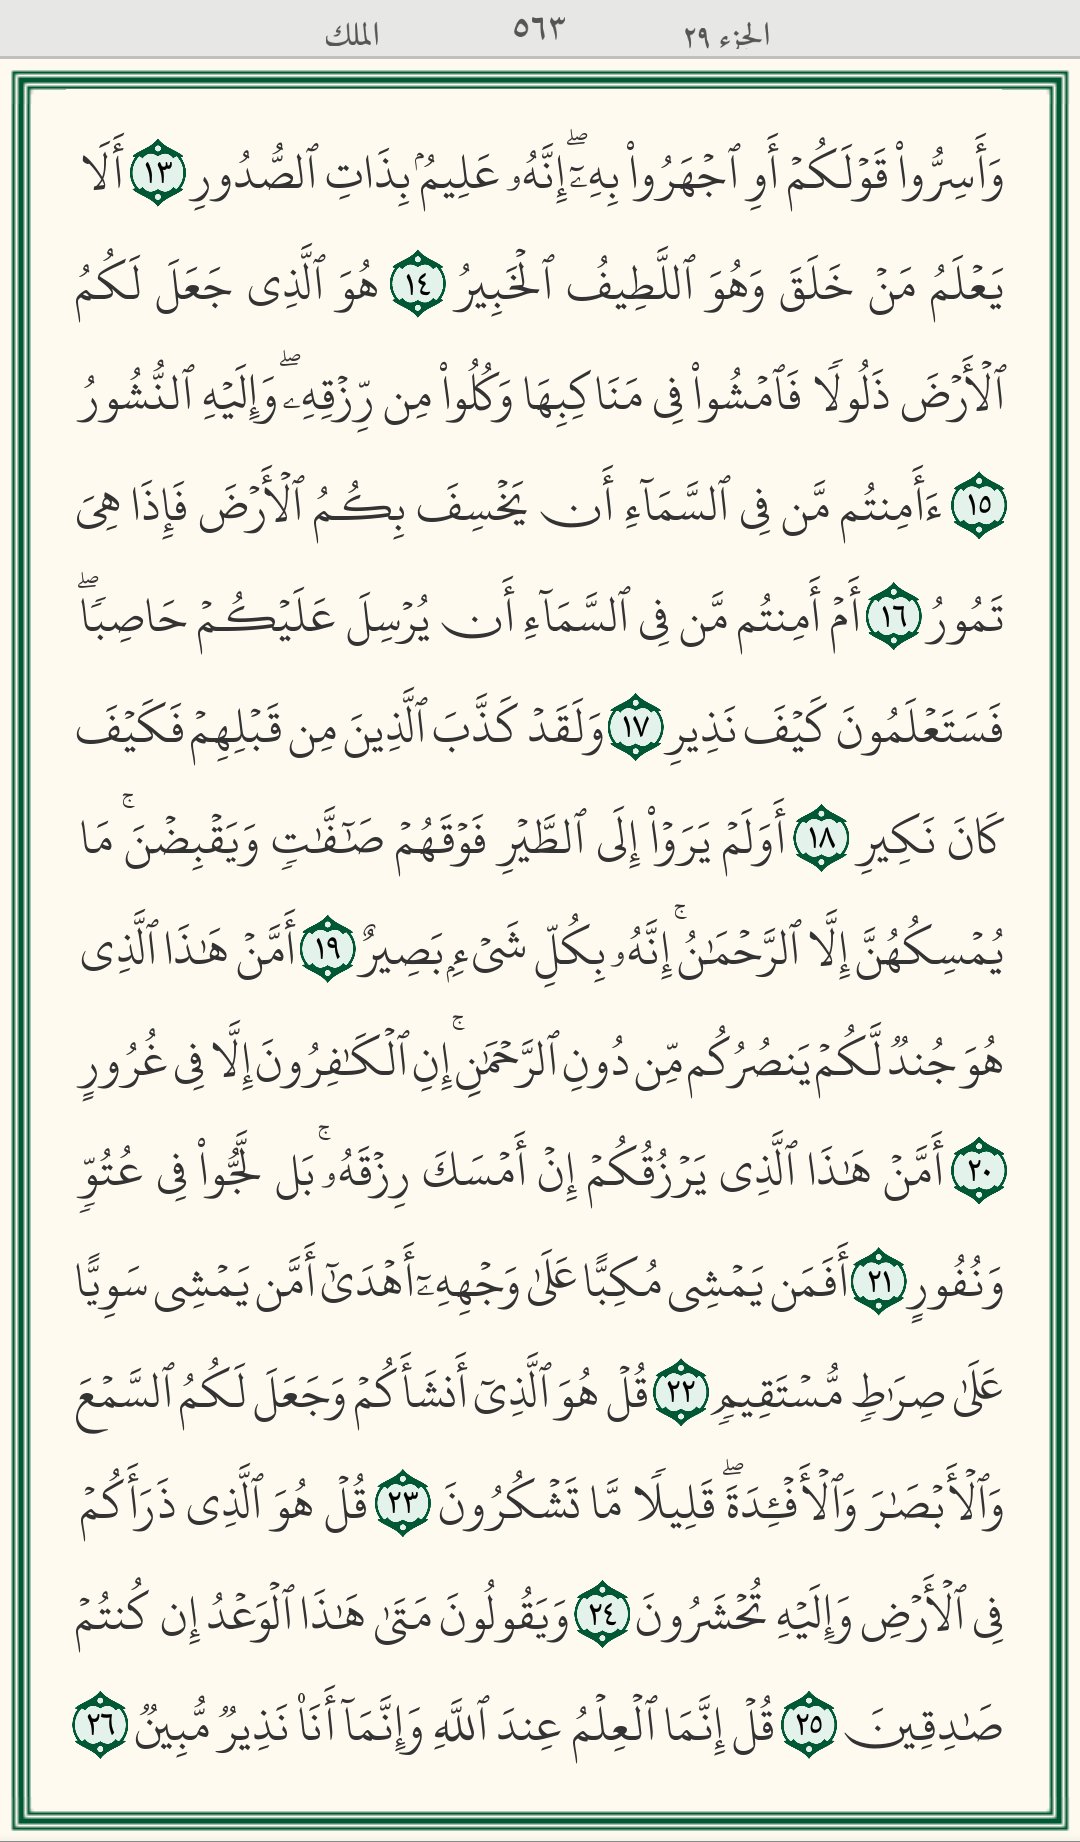 الجزء ٢٩ ٥٦٣ الملك
وَأَسِرُّوا۟ قَوْلَكُمْ أَوِ ٱجْهَرُوا۟ بِهِۦٓ ۖ إِنَّهُۥ عَلِيمٌۢ بِذَاتِ ٱلصُّدُورِ ١٣ أَلَا
يَعْلَمُ مَنْ خَلَقَ وَهُوَ ٱللَّطِيفُ ٱلْخَبِيرُ ١٤ هُوَ ٱلَّذِى جَعَلَ لَكُمُ
ٱلْأَرْضَ ذَلُولًا فَٱمْشُوا۟ فِى مَنَاكِبِهَا وَكُلُوا۟ مِن رِّزْقِهِۦ ۖ وَإِلَيْهِ ٱلنُّشُورُ
١٥ ءَأَمِنتُم مَّن فِى ٱلسَّمَآءِ أَن يَخْسِفَ بِكُمُ ٱلْأَرْضَ فَإِذَا هِىَ
تَمُورُ ١٦ أَمْ أَمِنتُم مَّن فِى ٱلسَّمَآءِ أَن يُرْسِلَ عَلَيْكُمْ حَاصِبًا ۖ
فَسَتَعْلَمُونَ كَيْفَ نَذِيرِ ١٧ وَلَقَدْ كَذَّبَ ٱلَّذِينَ مِن قَبْلِهِمْ فَكَيْفَ
كَانَ نَكِيرِ ١٨ أَوَلَمْ يَرَوْا۟ إِلَى ٱلطَّيْرِ فَوْقَهُمْ صَـٰٓفَّـٰتٍ وَيَقْبِضْنَ ۚ مَا
يُمْسِكُهُنَّ إِلَّا ٱلرَّحْمَـٰنُ ۚ إِنَّهُۥ بِكُلِّ شَىْءٍۭ بَصِيرٌ ١٩ أَمَّنْ هَـٰذَا ٱلَّذِى
هُوَ جُندٌ لَّكُمْ يَنصُرُكُم مِّن دُونِ ٱلرَّحْمَـٰنِ ۚ إِنِ ٱلْكَـٰفِرُونَ إِلَّا فِى غُرُورٍ
٢٠ أَمَّنْ هَـٰذَا ٱلَّذِى يَرْزُقُكُمْ إِنْ أَمْسَكَ رِزْقَهُۥ ۚ بَل لَّجُّوا۟ فِى عُتُوٍّ
وَنُفُورٍ ٢١ أَفَمَن يَمْشِى مُكِبًّا عَلَىٰ وَجْهِهِۦٓ أَهْدَىٰٓ أَمَّن يَمْشِى سَوِيًّا
عَلَىٰ صِرَٰطٍ مُّسْتَقِيمٍ ٢٢ قُلْ هُوَ ٱلَّذِىٓ أَنشَأَكُمْ وَجَعَلَ لَكُمُ ٱلسَّمْعَ
وَٱلْأَبْصَـٰرَ وَٱلْأَفْـِٔدَةَ ۖ قَلِيلًا مَّا تَشْكُرُونَ ٢٣ قُلْ هُوَ ٱلَّذِى ذَرَأَكُمْ
فِى ٱلْأَرْضِ وَإِلَيْهِ تُحْشَرُونَ ٢٤ وَيَقُولُونَ مَتَىٰ هَـٰذَا ٱلْوَعْدُ إِن كُنتُمْ
صَـٰدِقِينَ ٢٥ قُلْ إِنَّمَا ٱلْعِلْمُ عِندَ ٱللَّهِ وَإِنَّمَآ أَنَا۠ نَذِيرٌ مُّبِينٌ ٢٦